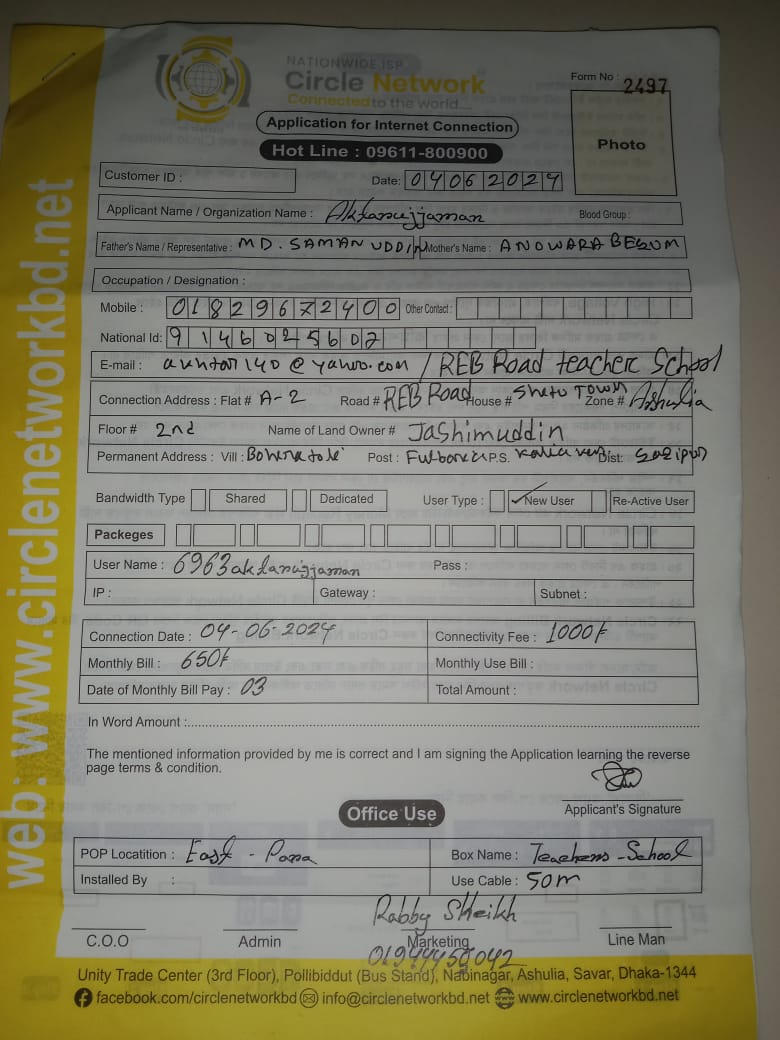 NATIONWIDE ISP
Circle Network
Connected to the world...
Form No : 2497
Application for Internet Connection
Photo
Hot Line : 09611-800900
Customer ID :
Date: 04062024
Applicant Name / Organization Name : Aktarujjaman Blood Group :
Father's Name / Representative : MD. SAMAN UDDIN Mother's Name : ANOWARA BEGUM
Occupation / Designation :
Mobile : 01829672400 Other Contact :
National Id: 9146025602
E-mail : akhtar140@yahoo.com / REB Road teacher School
Connection Address : Flat # A-2 Road # REB Road House # Shetu Town Zone # Ashulia
Floor # 2nd Name of Land Owner # Jashimuddin
Permanent Address : Vill : Post : Fulbaria P.S. Dist: Gazipur
Bandwidth Type Shared Dedicated User Type : New User Re-Active User
Packeges
User Name : 6963aktarujjaman Pass :
IP : Gateway : Subnet :
Connection Date : 04-06-2024 Connectivity Fee : 1000/-
Monthly Bill : 650/- Monthly Use Bill :
Date of Monthly Bill Pay : 03 Total Amount :
In Word Amount :
The mentioned information provided by me is correct and I am signing the Application learning the reverse
page terms & condition.
Applicant's Signature
Office Use
POP Locatition : East - Para Box Name : Teachers-School
Installed By : Use Cable : 50m
Rabby Sheikh
C.O.O Admin Marketing Line Man
Unity Trade Center (3rd Floor), Pollibiddut (Bus Stand), Nabinagar, Ashulia, Savar, Dhaka-1344
facebook.com/circlenetworkbd info@circlenetworkbd.net www.circlenetworkbd.net
web: www.circlenetworkbd.net